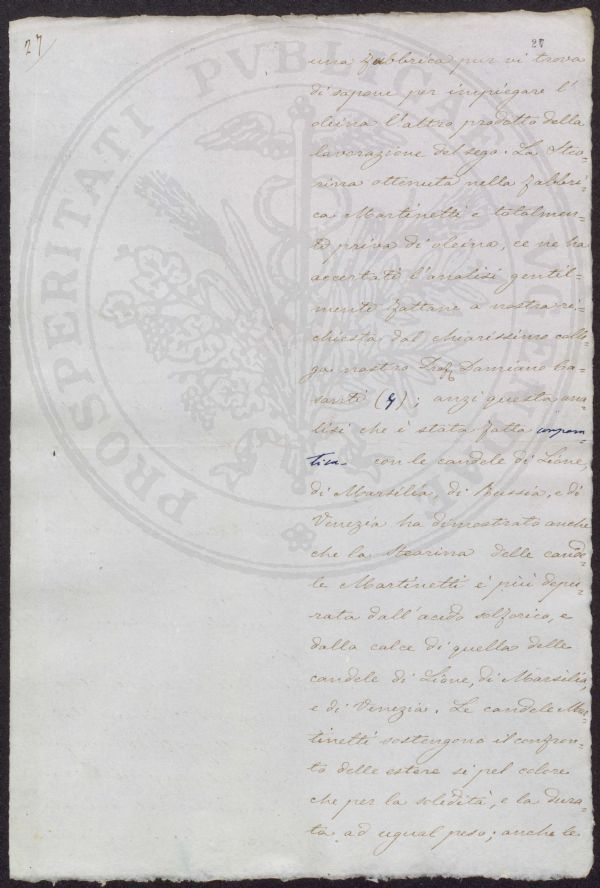 27
27
una fabbrica pur vi trova
di sapone per impiegare l'
oleina l'altro prodotto della
lavorazione del sego. La Stea=
rina ottenuta nella fabbri=
ca Martinetti è totalmen=
te priva di oleina, ce ne ha
accertati l'analisi gentil=
mente fattane a nostra ri=
chiesta dal chiarissimo colle=
ga nostro Prof Damiano Ca=
santi (4); anzi questa ana=
lisi che è stata fatta compara=
tiva con le candele di Lione,
di Marsilia, di Russia, e di
Venezia ha dimostrato anche
che la stearina delle cande=
le Martinetti è più depu=
rata dall'acido solforico, e
dalla calce di quella delle
candele di Lione, di Marsilia,
e di Venezia. Le candele Mar=
tinetti sostengono il confron=
to delle estere sì pel colore
che per la solidità, e la dura=
ta ad ugual peso; anche le
PROSPERITATI PVBLICAE AVGENDAE